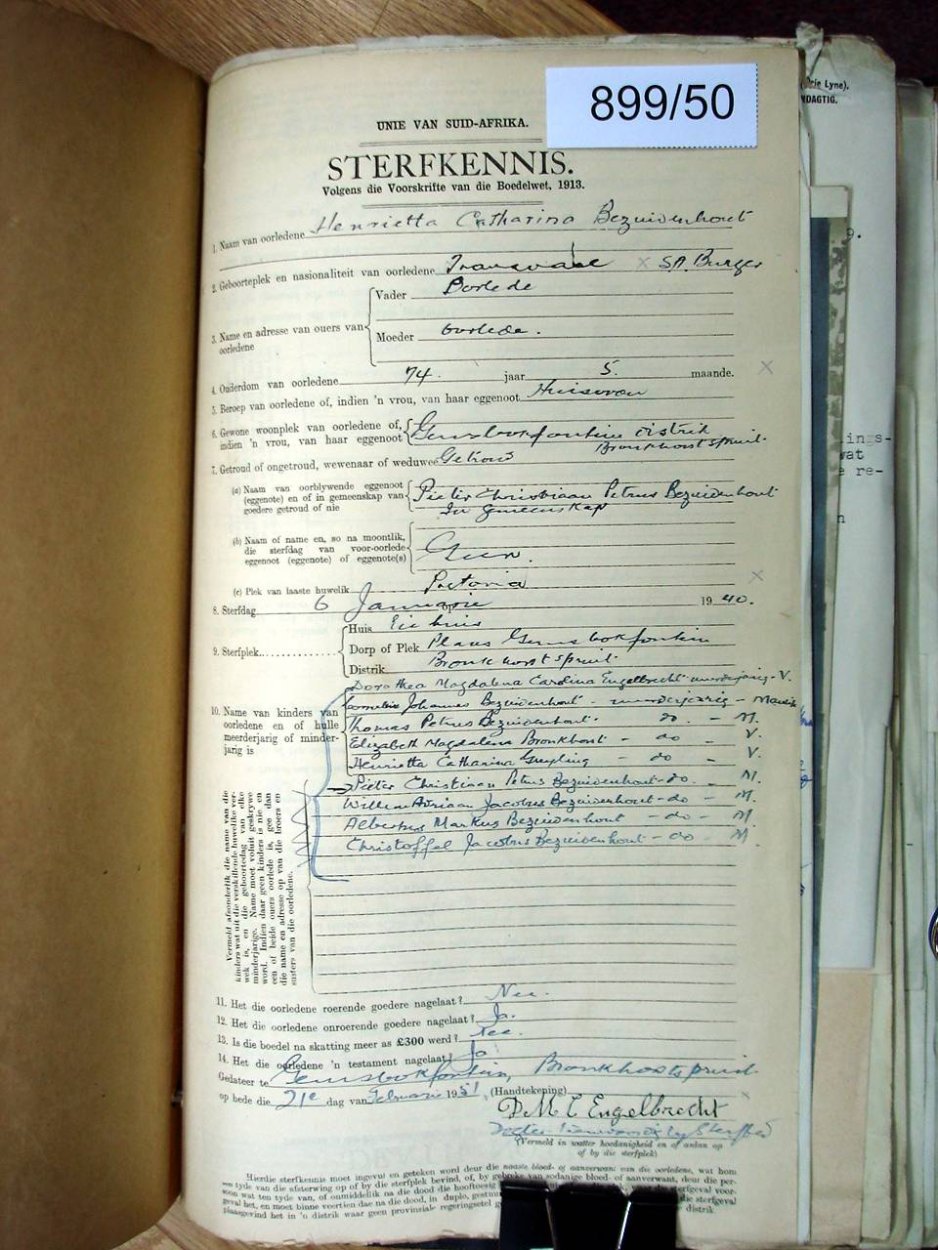 899/50
UNIE VAN SUID-AFRIKA.
STERFKENNIS.
Volgens die Voorskrifte van die Boedelwet, 1913.
1. Naam van oorledene Henrietta Catharina Bezuidenhout
2. Geboorteplek en nasionaliteit van oorledene Transvaal x SA. Burger
3. Name en adresse van ouers van oorledene
Vader Oorlede
Moeder Oorlede.
4. Ouderdom van oorledene 74. jaar 5. maande. x
5. Beroep van oorledene of, indien 'n vrou, van haar eggenoot Huisvrou
6. Gewone woonplek van oorledene of, indien 'n vrou, van haar eggenoot Gemsbokfontein distrik
Bronkhorstspruit.
7. Getroud of ongetroud, wewenaar of weduwee Getroud
(a) Naam van oorblywende eggenoot (eggenote) en of in gemeenskap van goedere getroud of nie
Pieter Christiaan Petrus Bezuidenhout
In Gemeenskap
(b) Naam of name en, so na moontlik, die sterfdag van voor-oorlede eggenoot (eggenote) of eggenote(s)
Geen
(c) Plek van laaste huwelik Pretoria x
8. Sterfdag 6 Januarie 19 40.
9. Sterfplek
Huis Eie huis
Dorp of Plek Plaas Gemsbokfontein
Distrik Bronkhorstspruit
10. Name van kinders van oorledene en of hulle meerderjarig of minderjarig is
Dorothea Magdalena Carolina Engelbrecht meerderjarig - V.
Cornelius Johannes Bezuidenhout - meerderjarig - Manlik
Thomas Petrus Bezuidenhout. do. - M.
Elizabeth Magdalena Bronkhorst - do - V.
Henrietta Catharina Greyling - do - V.
Pieter Christiaan Petrus Bezuidenhout - do. M.
Willem Adriaan Jacobus Bezuidenhout - do - M.
Albertus Markus Bezuidenhout - do - M
Christoffel Jacobus Bezuidenhout - do M
Vermeld afsonderlik die name van die
kinders wat uit die verskillende huwelike ver-
wek is, en die geboortedag van elke
minderjarige. Name moet voluit geskrywe
word. Indien daar geen kinders is nie en
een of beide ouers oorlede is, gee dan
die name en adresse op van die broers en
susters van die oorledene.
11. Het die oorledene roerende goedere nagelaat? Nee.
12. Het die oorledene onroerende goedere nagelaat? Ja.
13. Is die boedel na skatting meer as £300 werd? Nee.
14. Het die oorledene 'n testament nagelaat? Ja
Gedateer te Gemsbokfontein, Bronkhorstspruit.
op hede die 21e dag van Februarie 1951 (Handtekening)
D.M.C Engelbrecht
Dogter
(Vermeld in watter hoedanigheid en of anken op
of by die sterfplek)
Hierdie sterfkennis moet ingevul en geteken word deur die naaste bloed- of aanverwant van die oorledene, wat hom